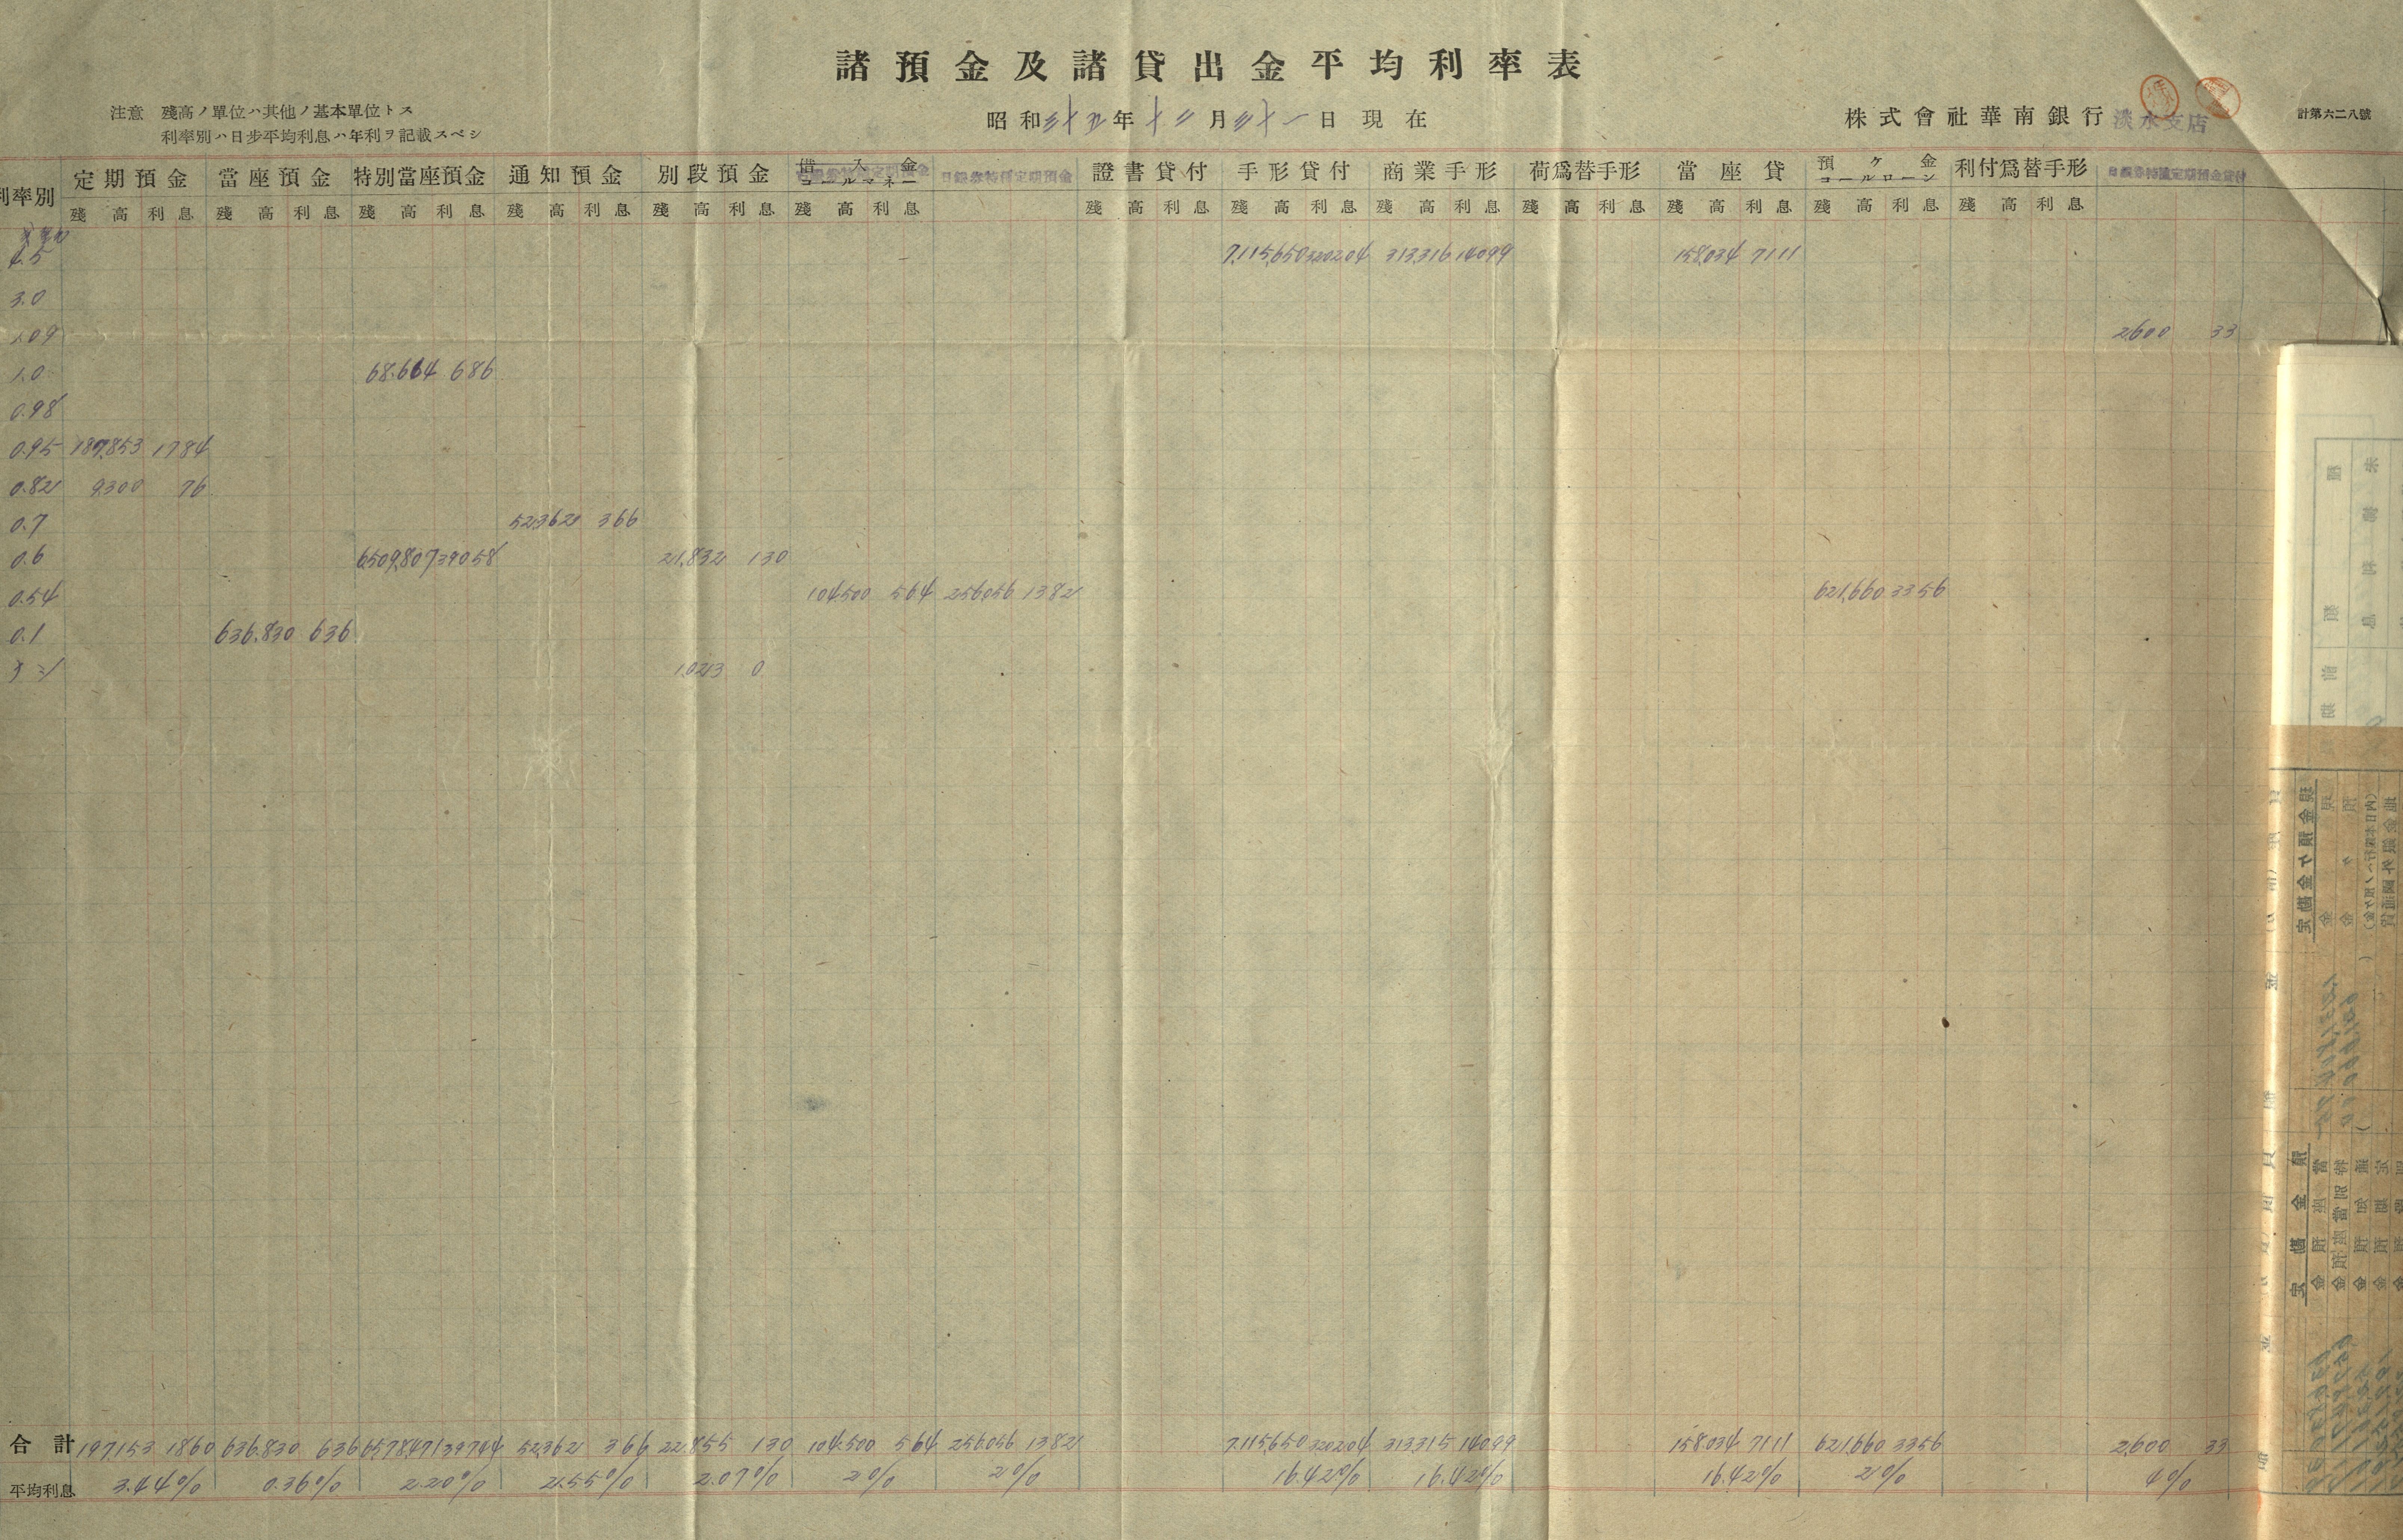 諸預金及諸貸出金平均利率表
注意 殘高ノ單位ハ其他ノ基本單位トス
利率別ハ日步平均利息ハ年利ヲ記載スベシ
昭和 年十二月三十一日現在
株式會社華南銀行 淡水支店
計第六二八號
利率別 定期預金 當座預金 特別當座預金 通知預金 別段預金 借入金 コールマネー 日銀券特種定期預金 證書貸付 手形貸付 商業手形 荷爲替手形 當座貸 預ケ金 コールローン 利付爲替手形 日銀券特種定期預金貸付
殘高 利息 殘高 利息 殘高 利息 殘高 利息 殘高 利息 殘高 利息 殘高 利息 殘高 利息 殘高 利息 殘高 利息 殘高 利息 殘高 利息 殘高 利息
4.5 7,115,650 320204 313,316 14099 158,034 7111
3.0
1.09 2,600 33
1.0 68.664 686
0.98
0.95 187,853 1784
0.82 9,300 76
0.7 52,362 366
0.6 6,509,807 39058 21,832 130
0.54 104,500 564 256,056 1382 621,660 3356
0.1 636,830 636
ナシ 1,023 0
合計 197,153 1860 636,830 636 6,578,471 39744 52,362 366 22,855 130 104,500 564 256,056 1382 7,115,650 320204 313,315 14099 158,034 7111 621,660 3356 2,600 33
平均利息 3.44% 0.36% 2.20% 2.55% 2.07% 2% 2% 16.42% 16.42% 16.42% 2% 4%